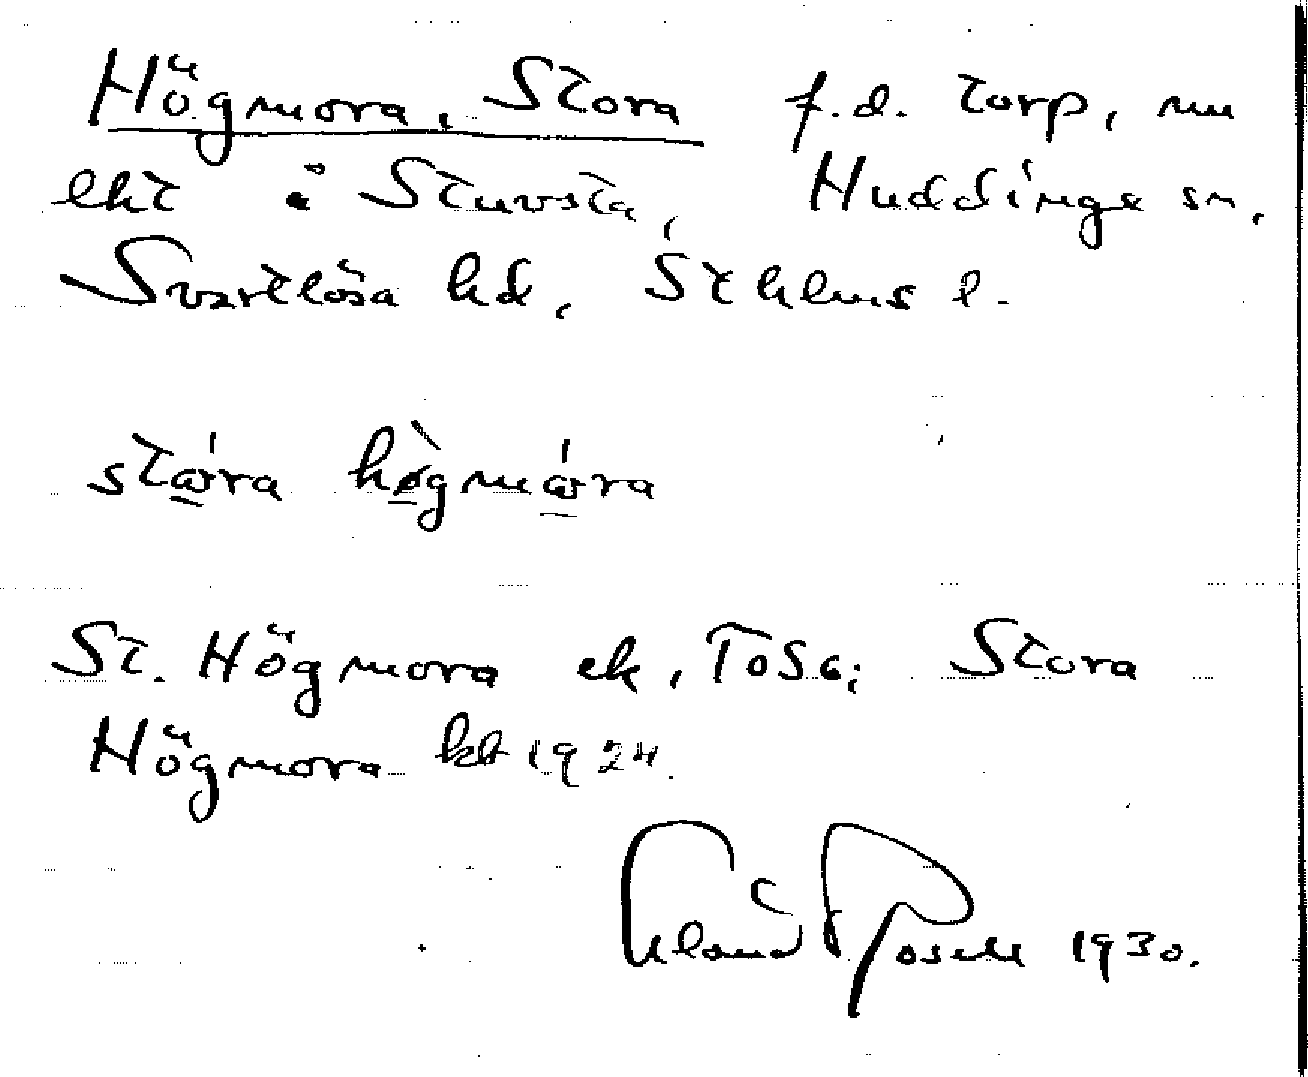 Högmora, Stora f.d. torp, nu
lht i Stuvsta, Huddinge sn,
Svartlösa hd, Sthlms l.
stora högmora
St. Högmora ek, ToS6; Stora
Högmora kbt 1924.
Rosell 1930.